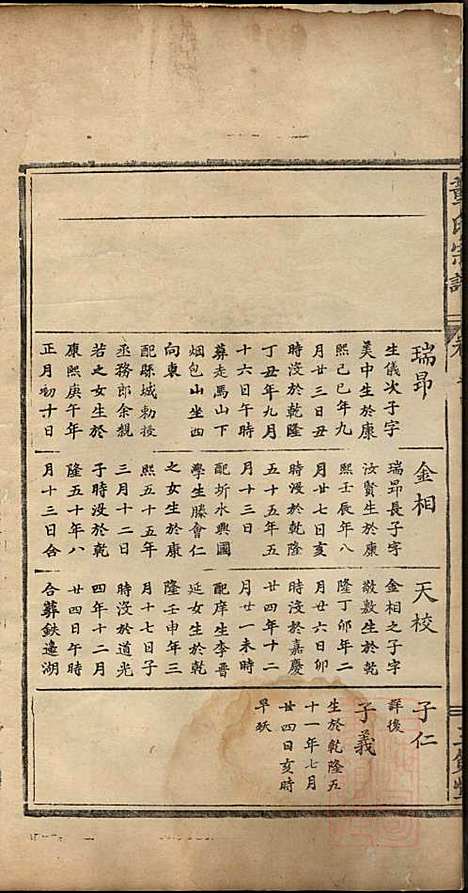 瑞昻
生儀次子字
美中生於康
熙己巳年九
月廿三日丑
時沒於乾隆
丁丑年九月
十六日午時
葬走馬山下
烟包山坐西
向東
配縣城勅授
丞務郎余親
若之女生於
康熙庚午年
正月初十日
金相
瑞昻長子字
汝賢生於康
熙壬辰年八
月廿七日亥
時沒於乾隆
五十五年五
月十三日
配圻水興國
學生滕會仁
之女生於康
熙五十五年
三月十二日
子時沒於乾
隆五十年八
月十三日合
天校
金相之子字
敬敷生於乾
隆丁卯年二
月廿六日卯
時沒於嘉慶
廿四年十二
月廿一未時
配庠生李晋
延女生於乾
隆壬申年三
月十七日子
時沒於道光
四年十二月
廿四日午時
合葬鉄邊湖
子仁
詳後
子義
生於乾隆五
十一年七月
廿四日亥時
早殀